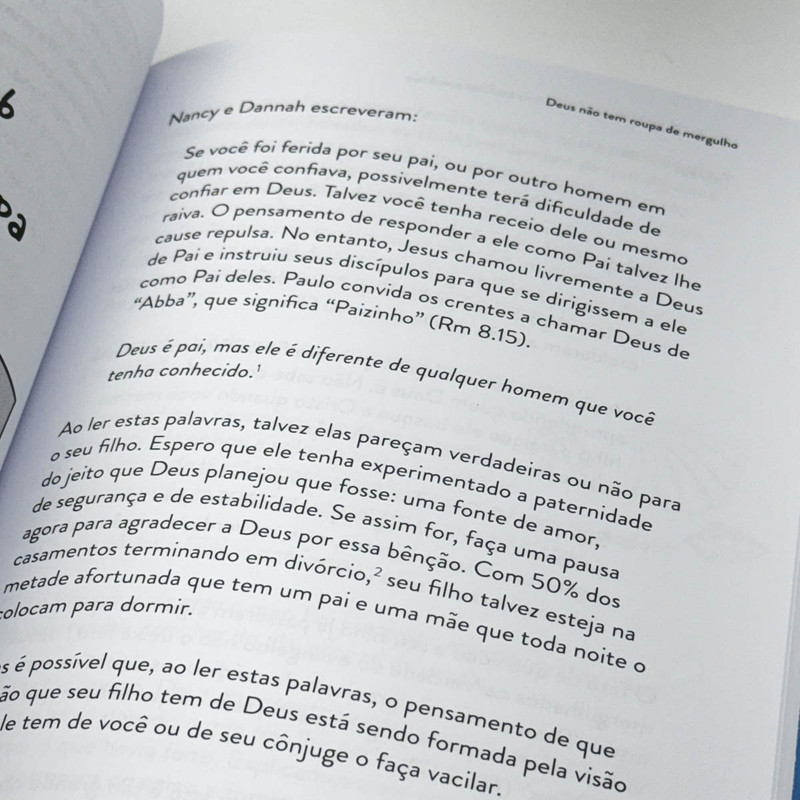 6
Deus não tem roupa de mergulho
Nancy e Dannah escreveram:
Se você foi ferida por seu pai, ou por outro homem em
quem você confiava, possivelmente terá dificuldade de
confiar em Deus. Talvez você tenha receio dele ou mesmo
raiva. O pensamento de responder a ele como Pai talvez lhe
cause repulsa. No entanto, Jesus chamou livremente a Deus
de Pai e instruiu seus discípulos para que se dirigissem a ele
como Pai deles. Paulo convida os crentes a chamar Deus de
“Abba”, que significa “Paizinho” (Rm 8.15).
Deus é pai, mas ele é diferente de qualquer homem que você
tenha conhecido.¹
Ao ler estas palavras, talvez elas pareçam verdadeiras ou não para
o seu filho. Espero que ele tenha experimentado a paternidade
do jeito que Deus planejou que fosse: uma fonte de amor,
de segurança e de estabilidade. Se assim for, faça uma pausa
agora para agradecer a Deus por essa bênção. Com 50% dos
casamentos terminando em divórcio,² seu filho talvez esteja na
metade afortunada que tem um pai e uma mãe que toda noite o
colocam para dormir.
é possível que, ao ler estas palavras, o pensamento de que
que seu filho tem de Deus está sendo formada pela visão
tem de você ou de seu cônjuge o faça vacilar.